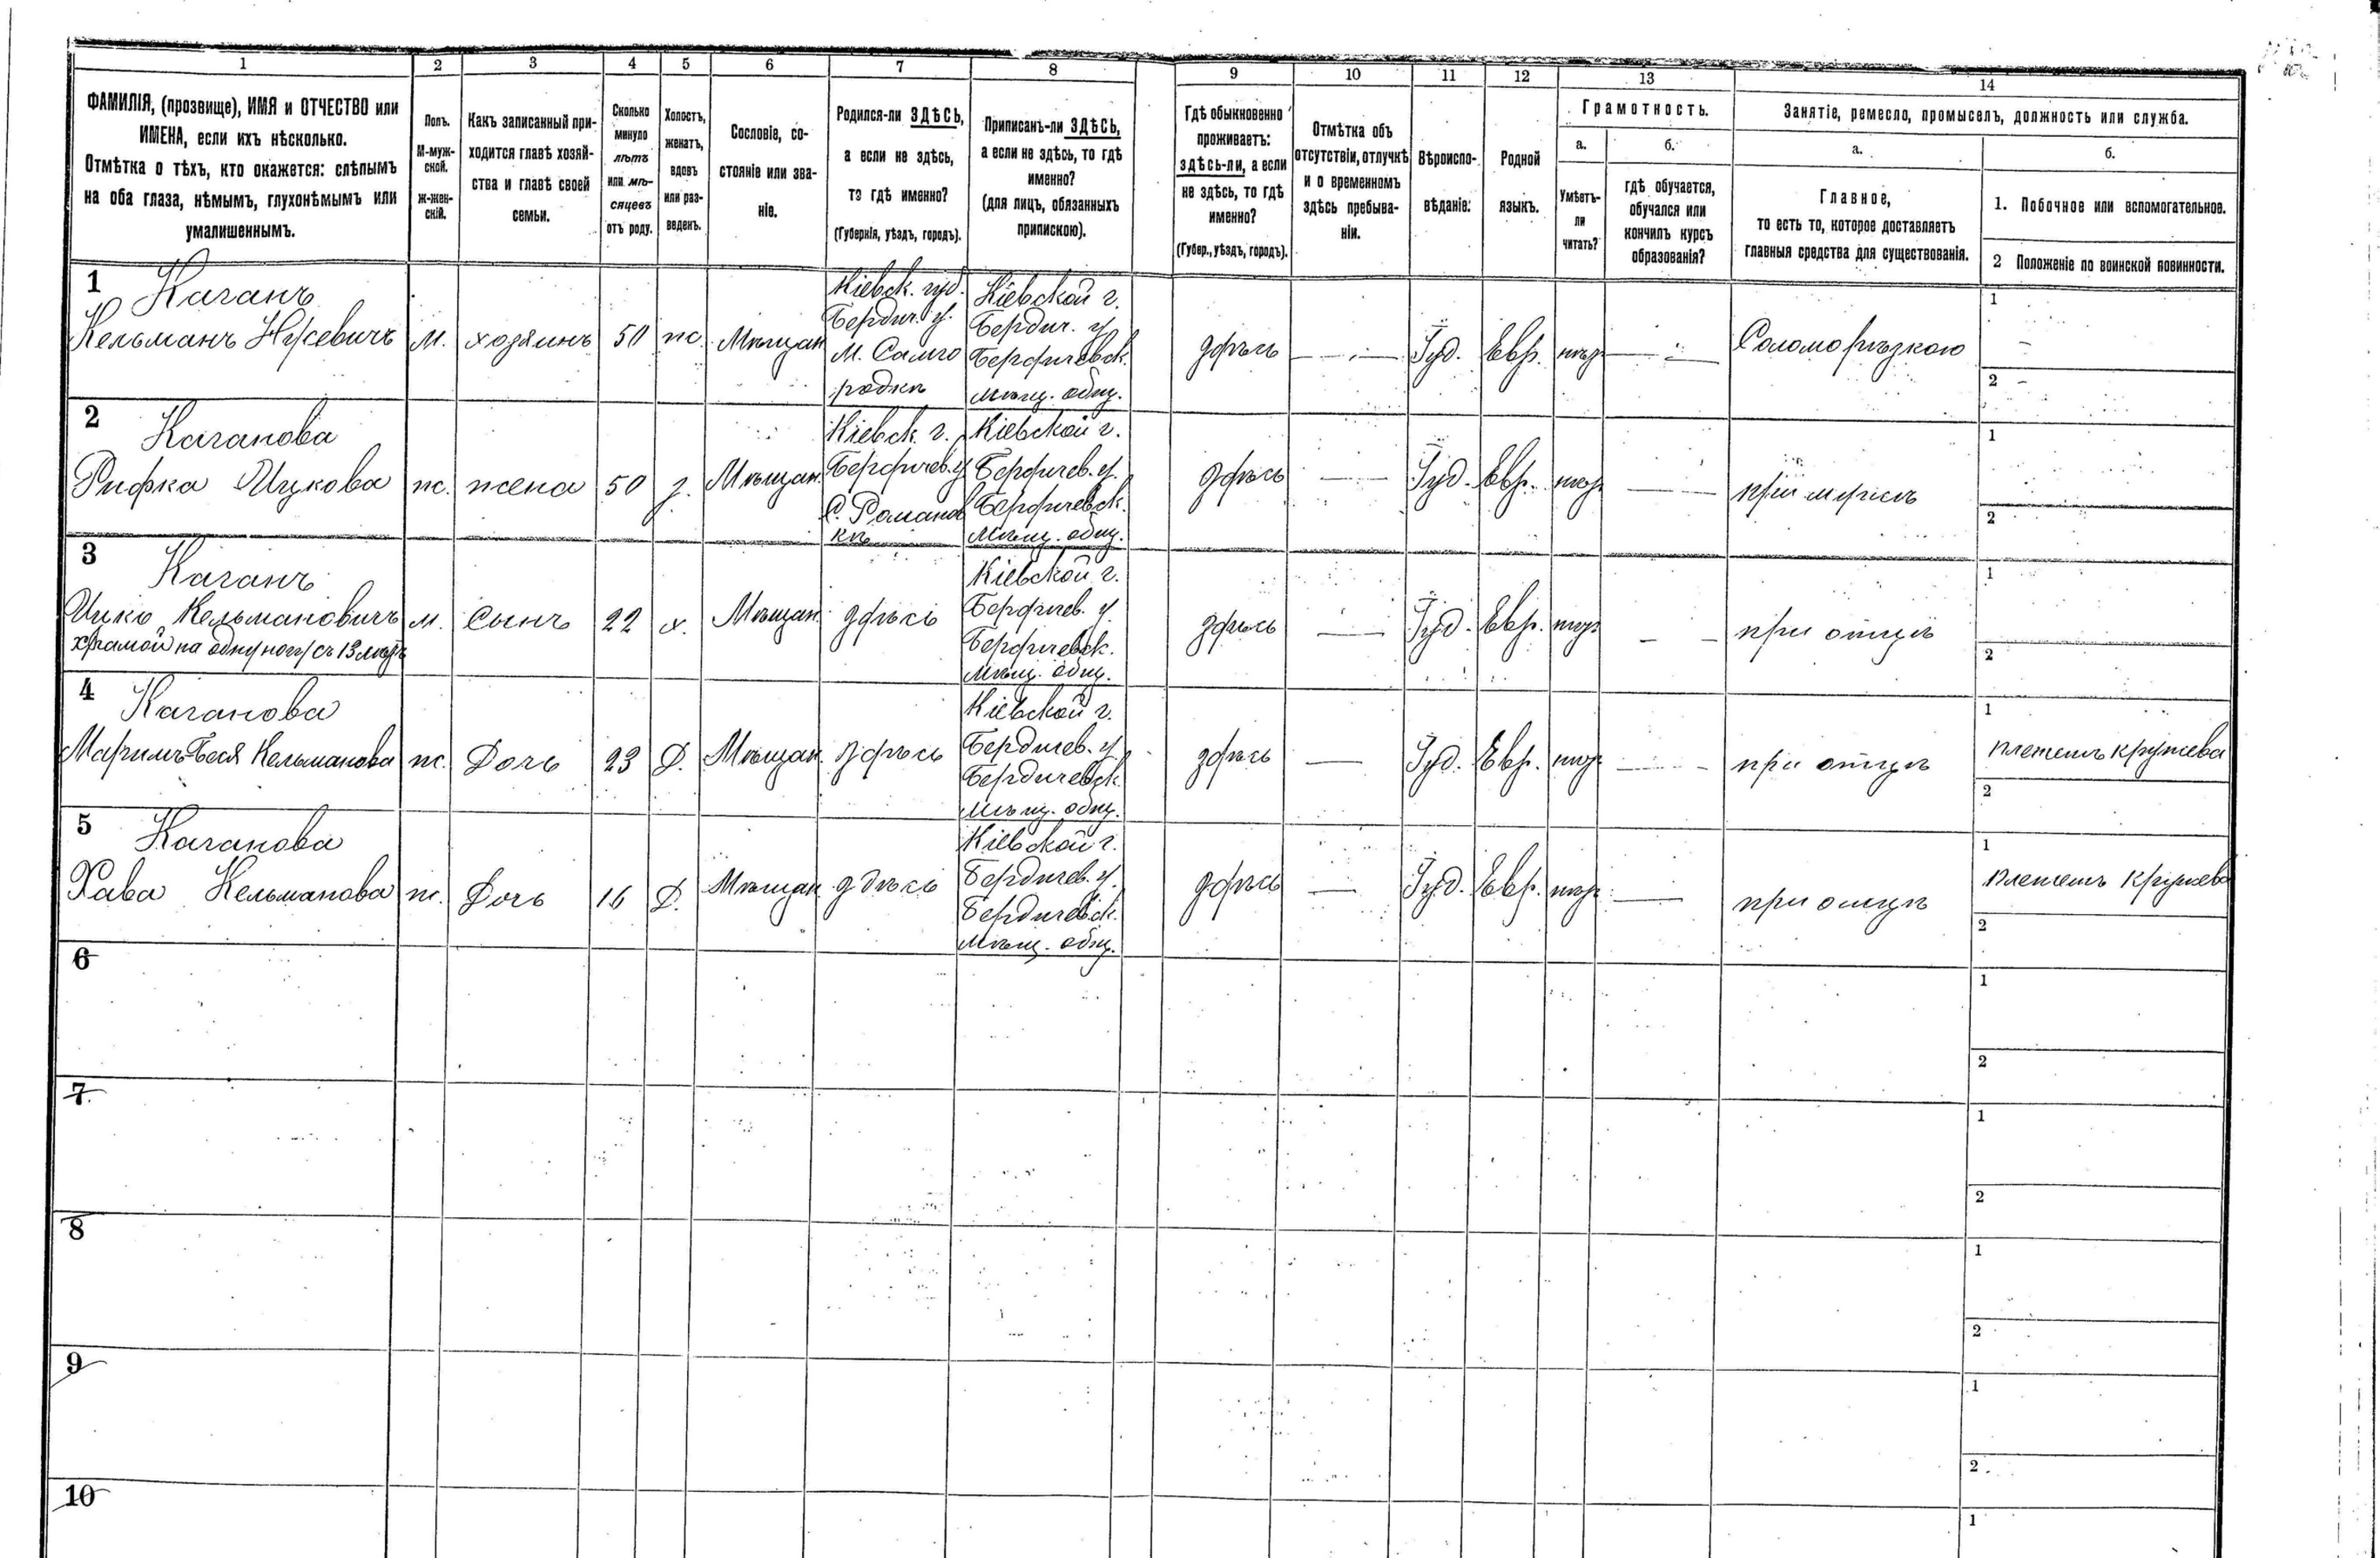 1 2 3 4 5 6 7 8 9 10 11 12 13 14
ФАМИЛІЯ, (прозвище), ИМЯ и ОТЧЕСТВО или
ИМЕНА, если ихъ нѣсколько.
Отмѣтка о тѣхъ, кто окажется: слѣпымъ
на оба глаза, нѣмымъ, глухонѣмымъ или
умалишеннымъ.
Полъ.
М-муж-
ской.
Ж-жен-
скій.
Какъ записанный при-
ходится главѣ хозяй-
ства и главѣ своей
семьи.
Сколько
минуло
лѣтъ
или мѣ-
сяцевъ
отъ роду.
Холостъ,
женатъ,
вдовъ
или раз-
веденъ.
Сословіе, со-
стояніе или зва-
ніе.
Родился-ли ЗДѢСЬ,
а если не здѣсь,
то гдѣ именно?
(Губернія, уѣздъ, городъ).
Приписанъ-ли ЗДѢСЬ,
а если не здѣсь, то гдѣ
именно?
(для лицъ, обязанныхъ
припискою).
Гдѣ обыкновенно
проживаетъ:
здѣсь-ли, а если
не здѣсь, то гдѣ
именно?
(Губер., уѣздъ, городъ).
Отмѣтка объ
отсутствіи, отлучкѣ
и о временномъ
здѣсь пребыва-
ніи.
Вѣроиспо-
вѣданіе.
Родной
языкъ.
Грамотность.
а.
Умѣетъ-
ли
читать?
б.
гдѣ обучается,
обучался или
кончилъ курсъ
образованія?
Занятіе, ремесло, промыселъ, должность или служба.
а.
Главное,
то есть то, которое доставляетъ
главныя средства для существованія.
б.
1. Побочное или вспомогательное.
2 Положеніе по воинской повинности.
1 Каганъ
Кельманъ
м.
хозяинъ
50
ж.
Мѣщан
Кіевск. губ.
Бердич. у.
М. Самго
родкѣ
Кіевской г.
Бердич. у
Бердичевск.
мѣщ. общ.
здѣсь
Іуд.
Евр.
нѣт
1
2
2 Каганова
Рифка Ицкова
ж.
жена
50
з.
Мѣщан.
Кіевск. г.
Бердичев. у
С. Романов
кѣ
Кіевской г.
Бердичев. у.
Бердичевск.
Мѣщ. общ.
здѣсь
Іуд.
Евр.
при мужѣ
1
2
3 Каганъ
Ицко Кельмановичъ
хромой на одну ногу съ 13 лѣтъ
м.
Сынъ
22
х.
Мѣщан.
здѣсь
Кіевской г.
Бердичев. у
Бердичевск.
мѣщ. общ.
здѣсь
Іуд.
Евр.
при отцѣ
1
2
4 Каганова
Кельманова
ж.
Дочь
23
Д.
Мѣщан.
здѣсь
Кіевской г.
Бердичев. у
Бердичевск.
мѣщ. общ.
здѣсь
Іуд.
Евр.
при отцѣ
1
плететъ кружева
2
5 Каганова
Хава Кельманова
ж.
Дочь
16
Д.
Мѣщан.
здѣсь
Кіевской г.
Бердичев. у.
Бердичевск.
Мѣщ. общ.
здѣсь
Іуд.
Евр.
при отцѣ
1
плететъ кружева
2
6
1
2
7
1
2
8
1
2
9
1
2
10
1